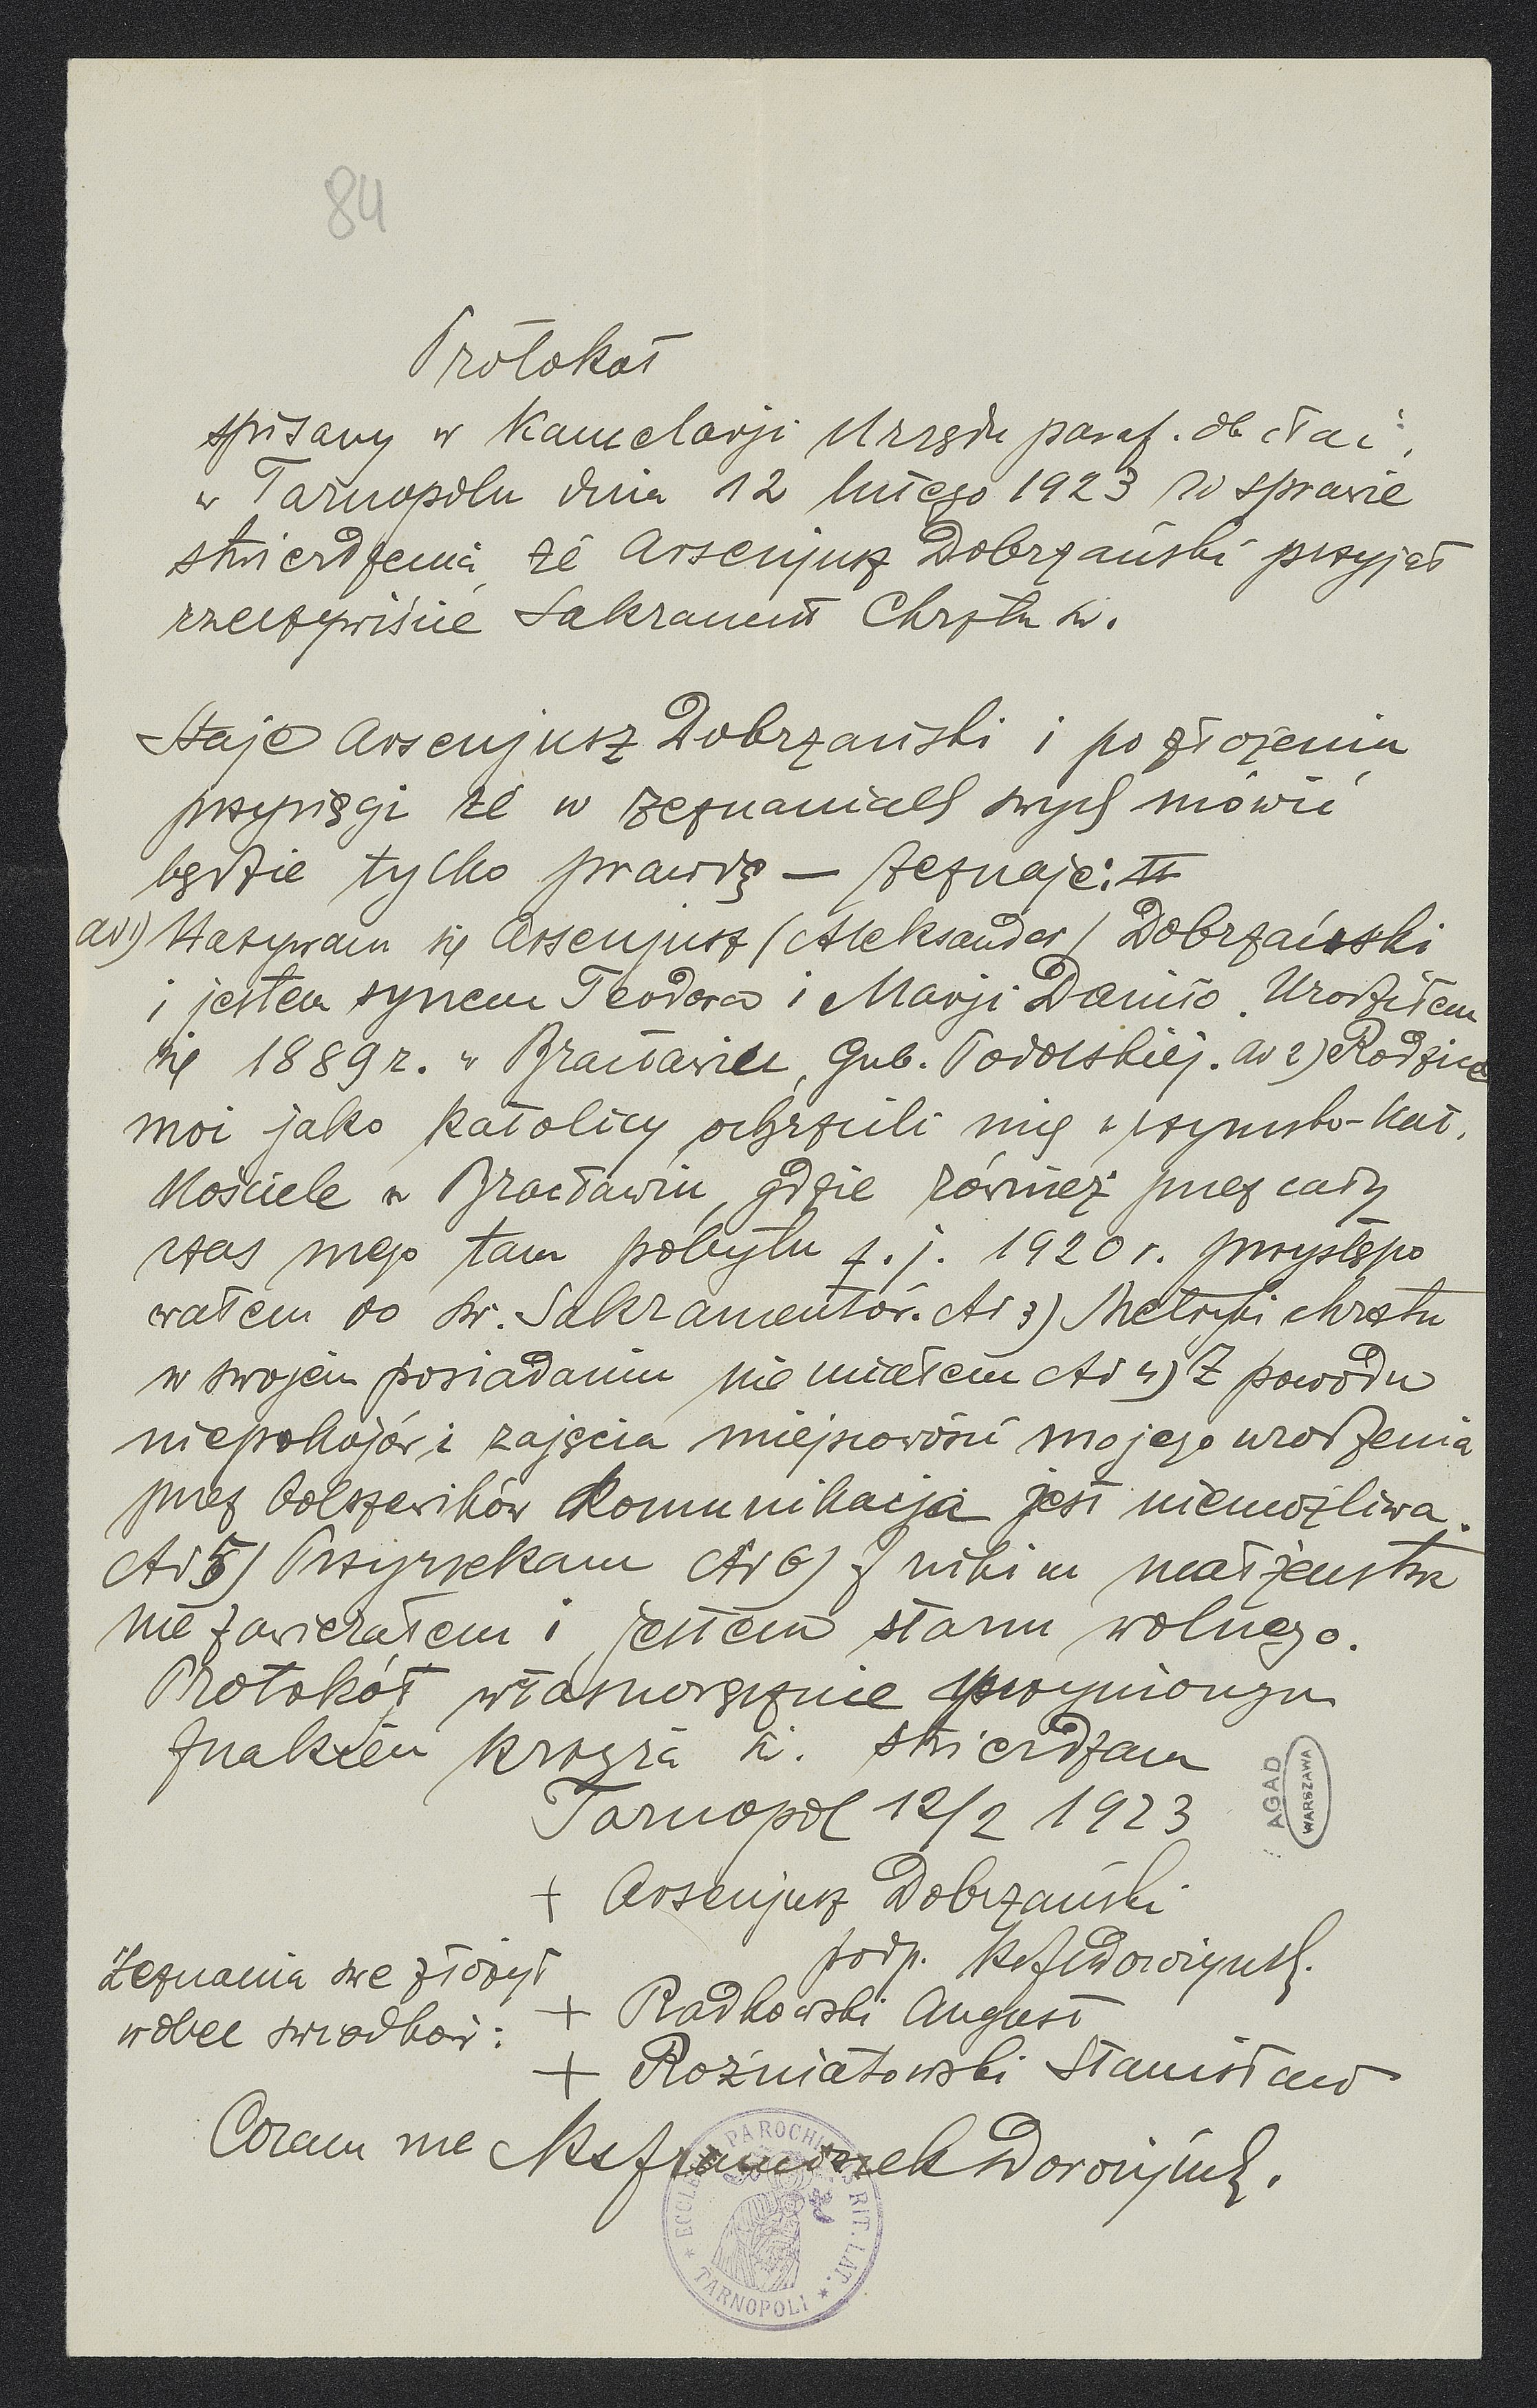 84
Protokół
spisany w Kancelarji Urzędu paraf. ob. łać.
w Tarnopolu dnia 12 lutego 1923 w sprawie
stwierdzenia, że Arsenjusz Dobrzański przyjął
rzeczywiście Sakrament Chrztu św.
Staje Arsenjusz Dobrzański i po złożeniu
przysięgi że w zeznaniach swych mówić
będzie tylko prawdę — zeznaje:
ad 1) Nazywam się Arsenjusz (Aleksander) Dobrzański
i jestem synem Teodora i Marji Daniło. Urodziłem
się 1889 r. w Bracławiu, Gub. Podolskiej. ad 2) Rodzice
moi jako katolicy ochrzcili mię w rzymsko-kat.
Kościele w Bracławiu, gdzie również przez cały
czas mego tam pobytu t. j. 1920 r. przystępo
wałem do św. Sakramentów. Ad 3) Metryki chrztu
w swojem posiadaniu nie miałem Ad 4) Z powodu
niepokojów i zajęcia miejscowości mojego urodzenia
przez bolszewików komunikacja jest niemożliwa.
Ad 5) Przyrzekam Ad 6) Z nikim małżeństw
nie zawierałem i jestem stanu wolnego.
Protokół własnoręcznie
znakiem krzyża św. stwierdzam
Tarnopol 12/2 1923
+ Arsenjusz Dobrzański
podp.
Zeznania swe złożył
wobec świadków:
+ Radkowski August
+ Rożniatowski Stanisław
Coram me Ks Franciszek
ECCLESIA PAROCHIALIS RIT. LAT. * TARNOPOLI *
AGAD
WARSZAWA